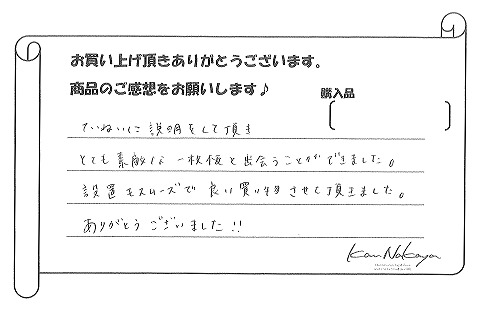 お買い上げ頂きありがとうございます。
商品のご感想をお願いします♪
購入品
ていねいに説明をして頂き
とても素敵な一枚板と出会うことができました。
設置もスムーズで良い買い物させて頂きました。
ありがとうございました!!
Kan Nakaya